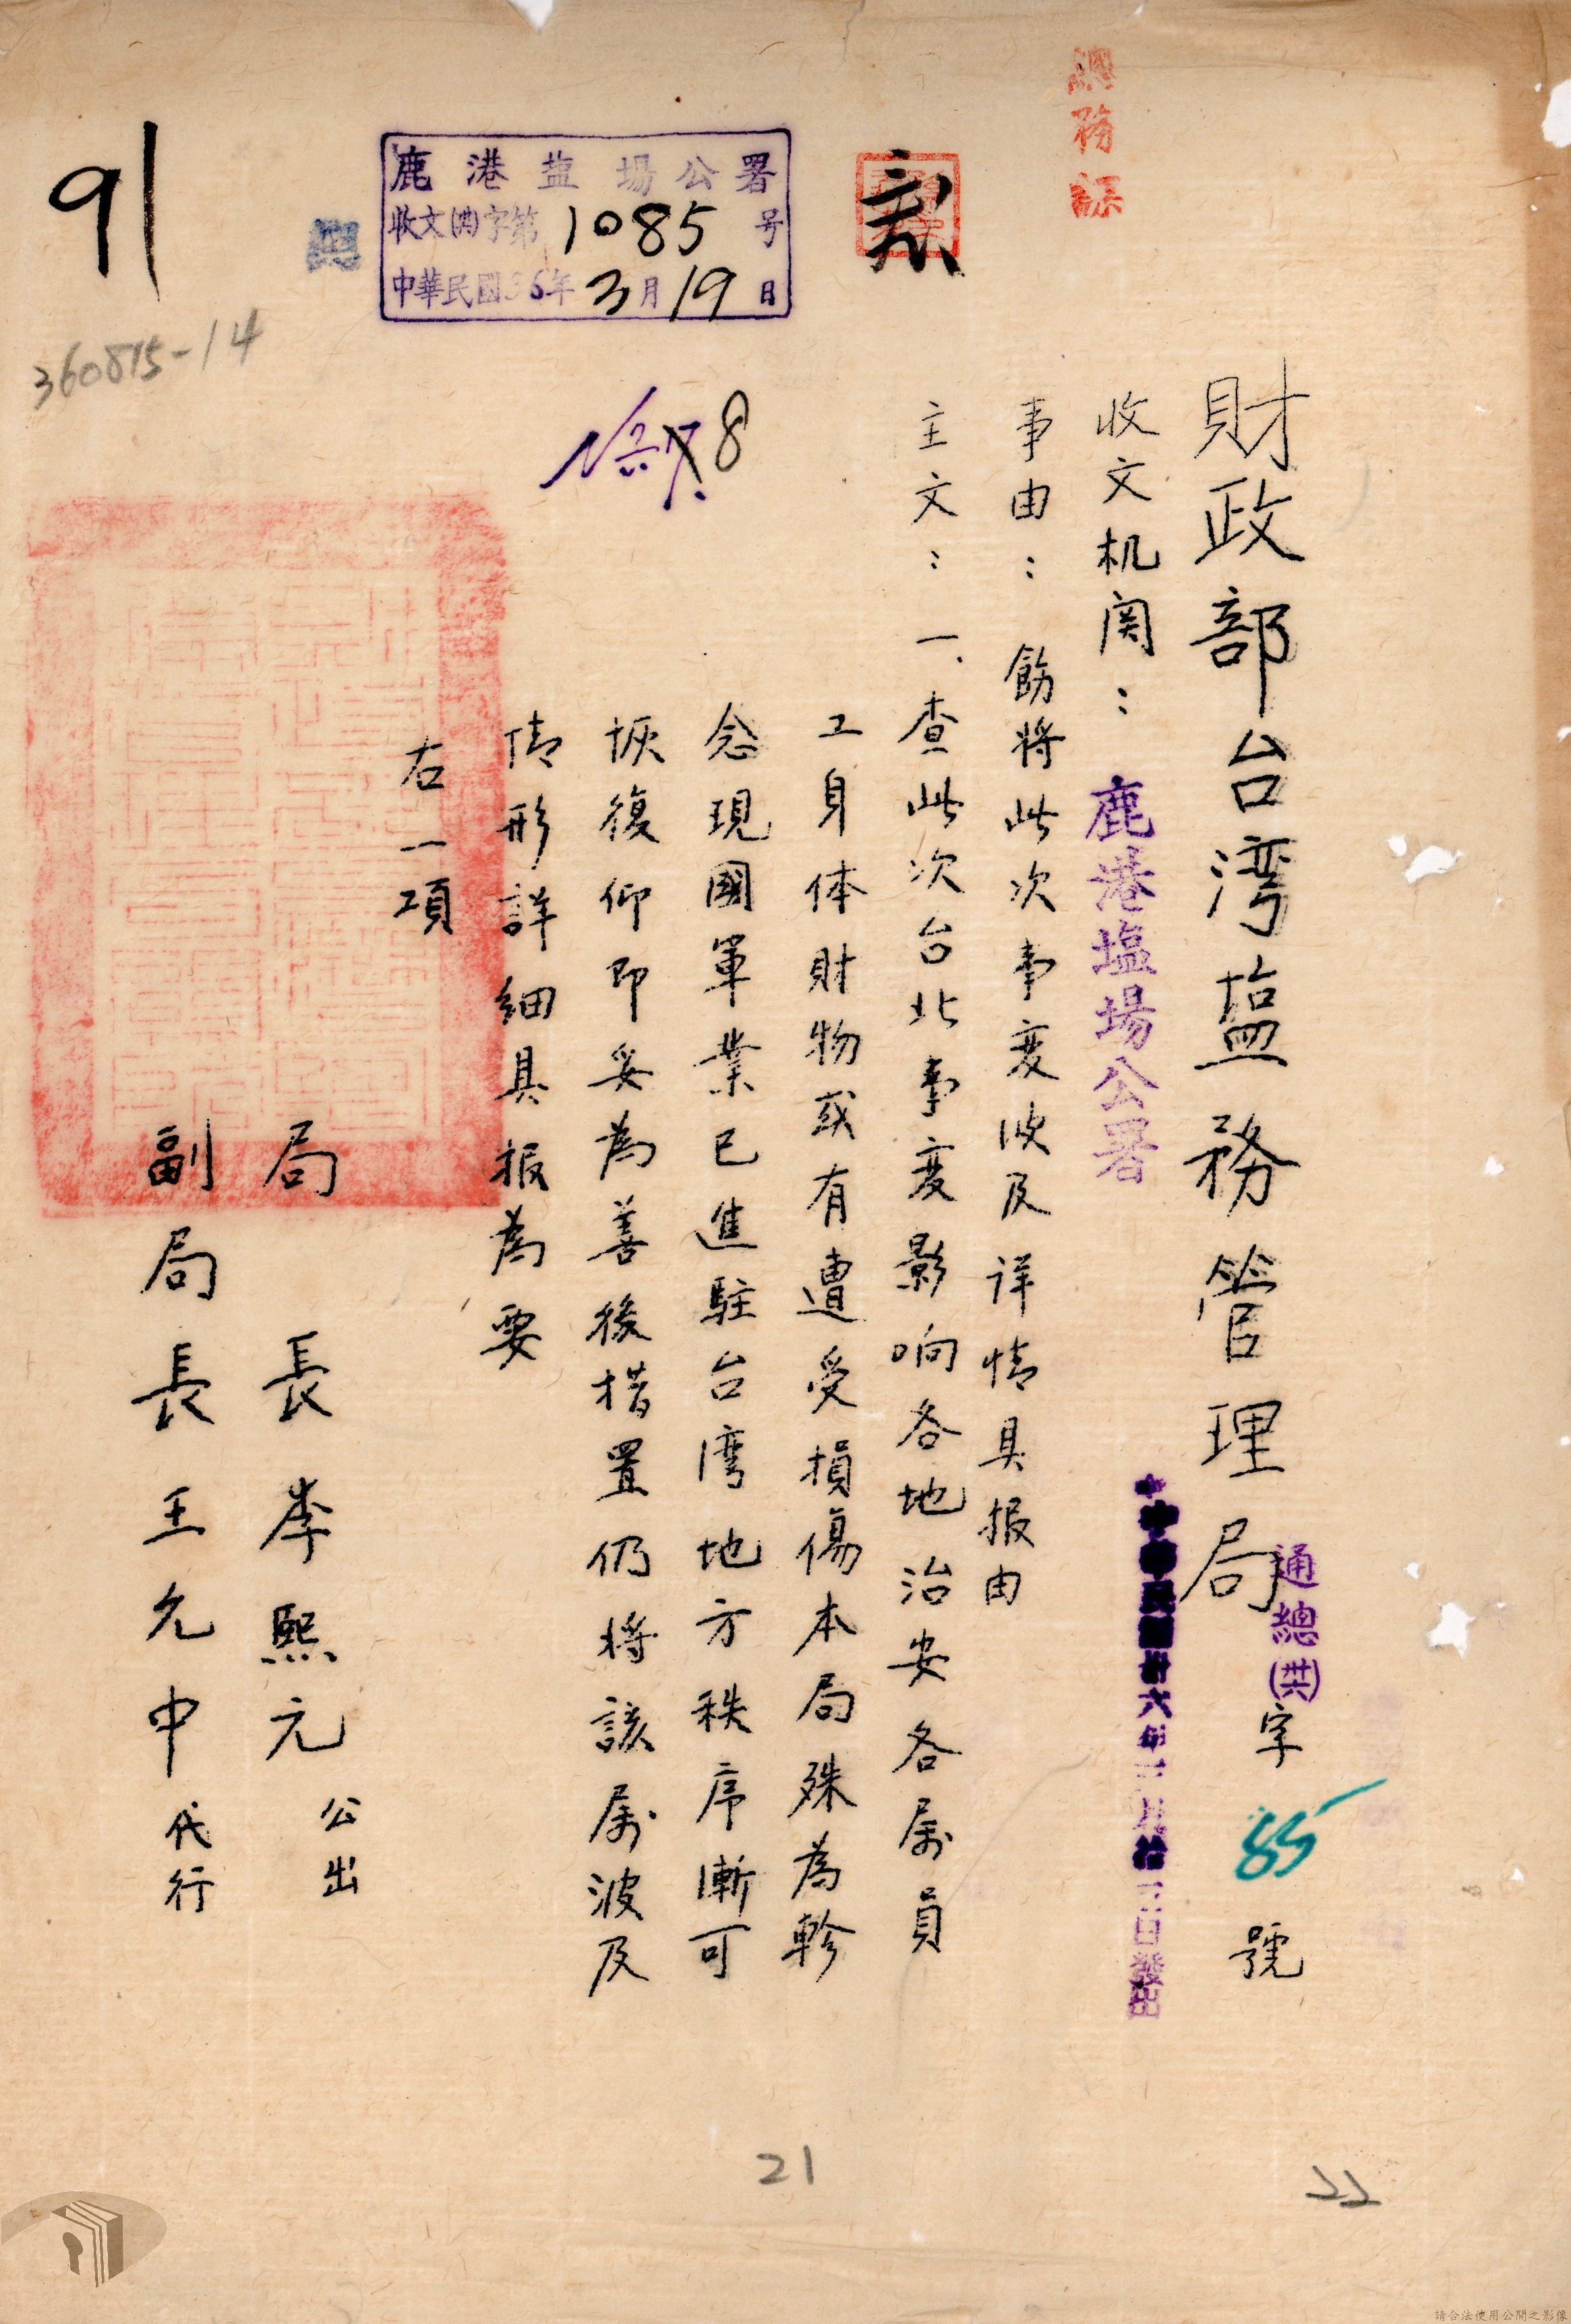 總務課
財政部台湾塩務管理局
通總(卅六)字 85 號
收文机関：鹿港塩場公署
中華民國卅六年三月拾三日發出
事由：飭將此次事变波及详情具报由
主文：一、查此次台北事变影响各地治安各属員
工身体財物或有遭受損傷本局殊為軫
念現國軍業已進駐台湾地方秩序漸可
恢復仰即妥為善後措置仍将該属波及
情形詳細具报為要
右一項
局長李熙元公出
副局長王允中代行
鹿港盐場公署
收文(卅六)字第1085号
中華民國36年3月19日
8
91
360815-14
21
22
請合法使用公開之影像